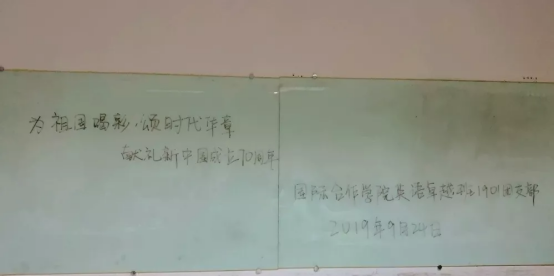 为祖国喝彩，颂时代华章
献礼新中国成立70周年
国际合作学院英语卓越班1901团支部
2019年9月24日